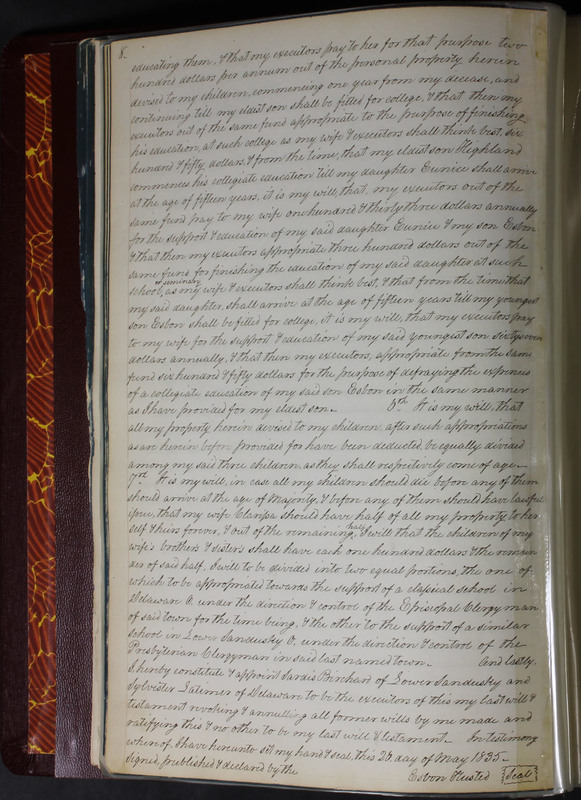 8.
educating them, & that my executors pay to her for that purpose two
hundred dollars per annum out of the personal property herein
devised to my children, commencing one year from my decease, and
continuing till my eldest son shall be fitted for college, & that then my
executors out of the same fund appropriate to the purpose of finishing
his education, at such college as my wife & executors shall think best, six
hundred & fifty dollars, & from the time, that my eldest son Highland
commences his collegiate education till my daughter Eunice shall arrive
at the age of fifteen years, it is my will, that, my executors out of the
same fund pay to my wife one hundred & thirty three dollars annually
for the support & education of my said daughter Eunice & my son Esbon
& that then my executors appropriate three hundred dollars out of the
same fund for finishing the education of my said daughter at such
school, or seminary as my wife & executors shall think best, & that from the time that
my said daughter, shall arrive at the age of fifteen years till my youngest
son Esbon shall be fitted for college, it is my will, that my executors pay
to my wife for the support & education of my said youngest son sixty seven
dollars annually, & that then my executors, appropriate from the same
fund six hundred & fifty dollars for the purpose of defraying the expences
of a collegiate education of my said son Esbon in the same manner
as I have provided for my eldest son. It is my will, that
all my property herein devised to my children, after such appropriations
as are herein before provided for have been deducted, be equally divided
among my said three children, as they shall respectively come of age.
7rd. It is my will, in case all my children should die before any of them
should arrive at the age of Majority, & before any of them should have lawful
issue, that my wife Clarisa should have half of all my property to her
self & heirs forever, & out of the remaining half, I will that the children of my
wife's brothers & sisters shall have each one hundred dollars & the remain
der of said half, I will to be divided into two equal portions, the one of
which to be appropriated towards the support of a classical school in
Delaware O. under the direction & control of the Episcopal Clergyman
of said town for the time being, & the other to the support of a similar
school in Lower Sandusky O. under the direction & control of the
Presbyterian Clergyman in said last named town. And lastly,
I hereby constitute & appoint Sardis Birchard of Lower Sandusky and
Sylvester Latimer of Delaware to be the executors of this my last will &
testament revoking & annulling all former wills by me made and
ratifying this & no other to be my last will & testament. In testimony
whereof, I have hereunto set my hand & seal, this 26 day of May 1835.
Signed published & declared by the Esbon Husted Seal